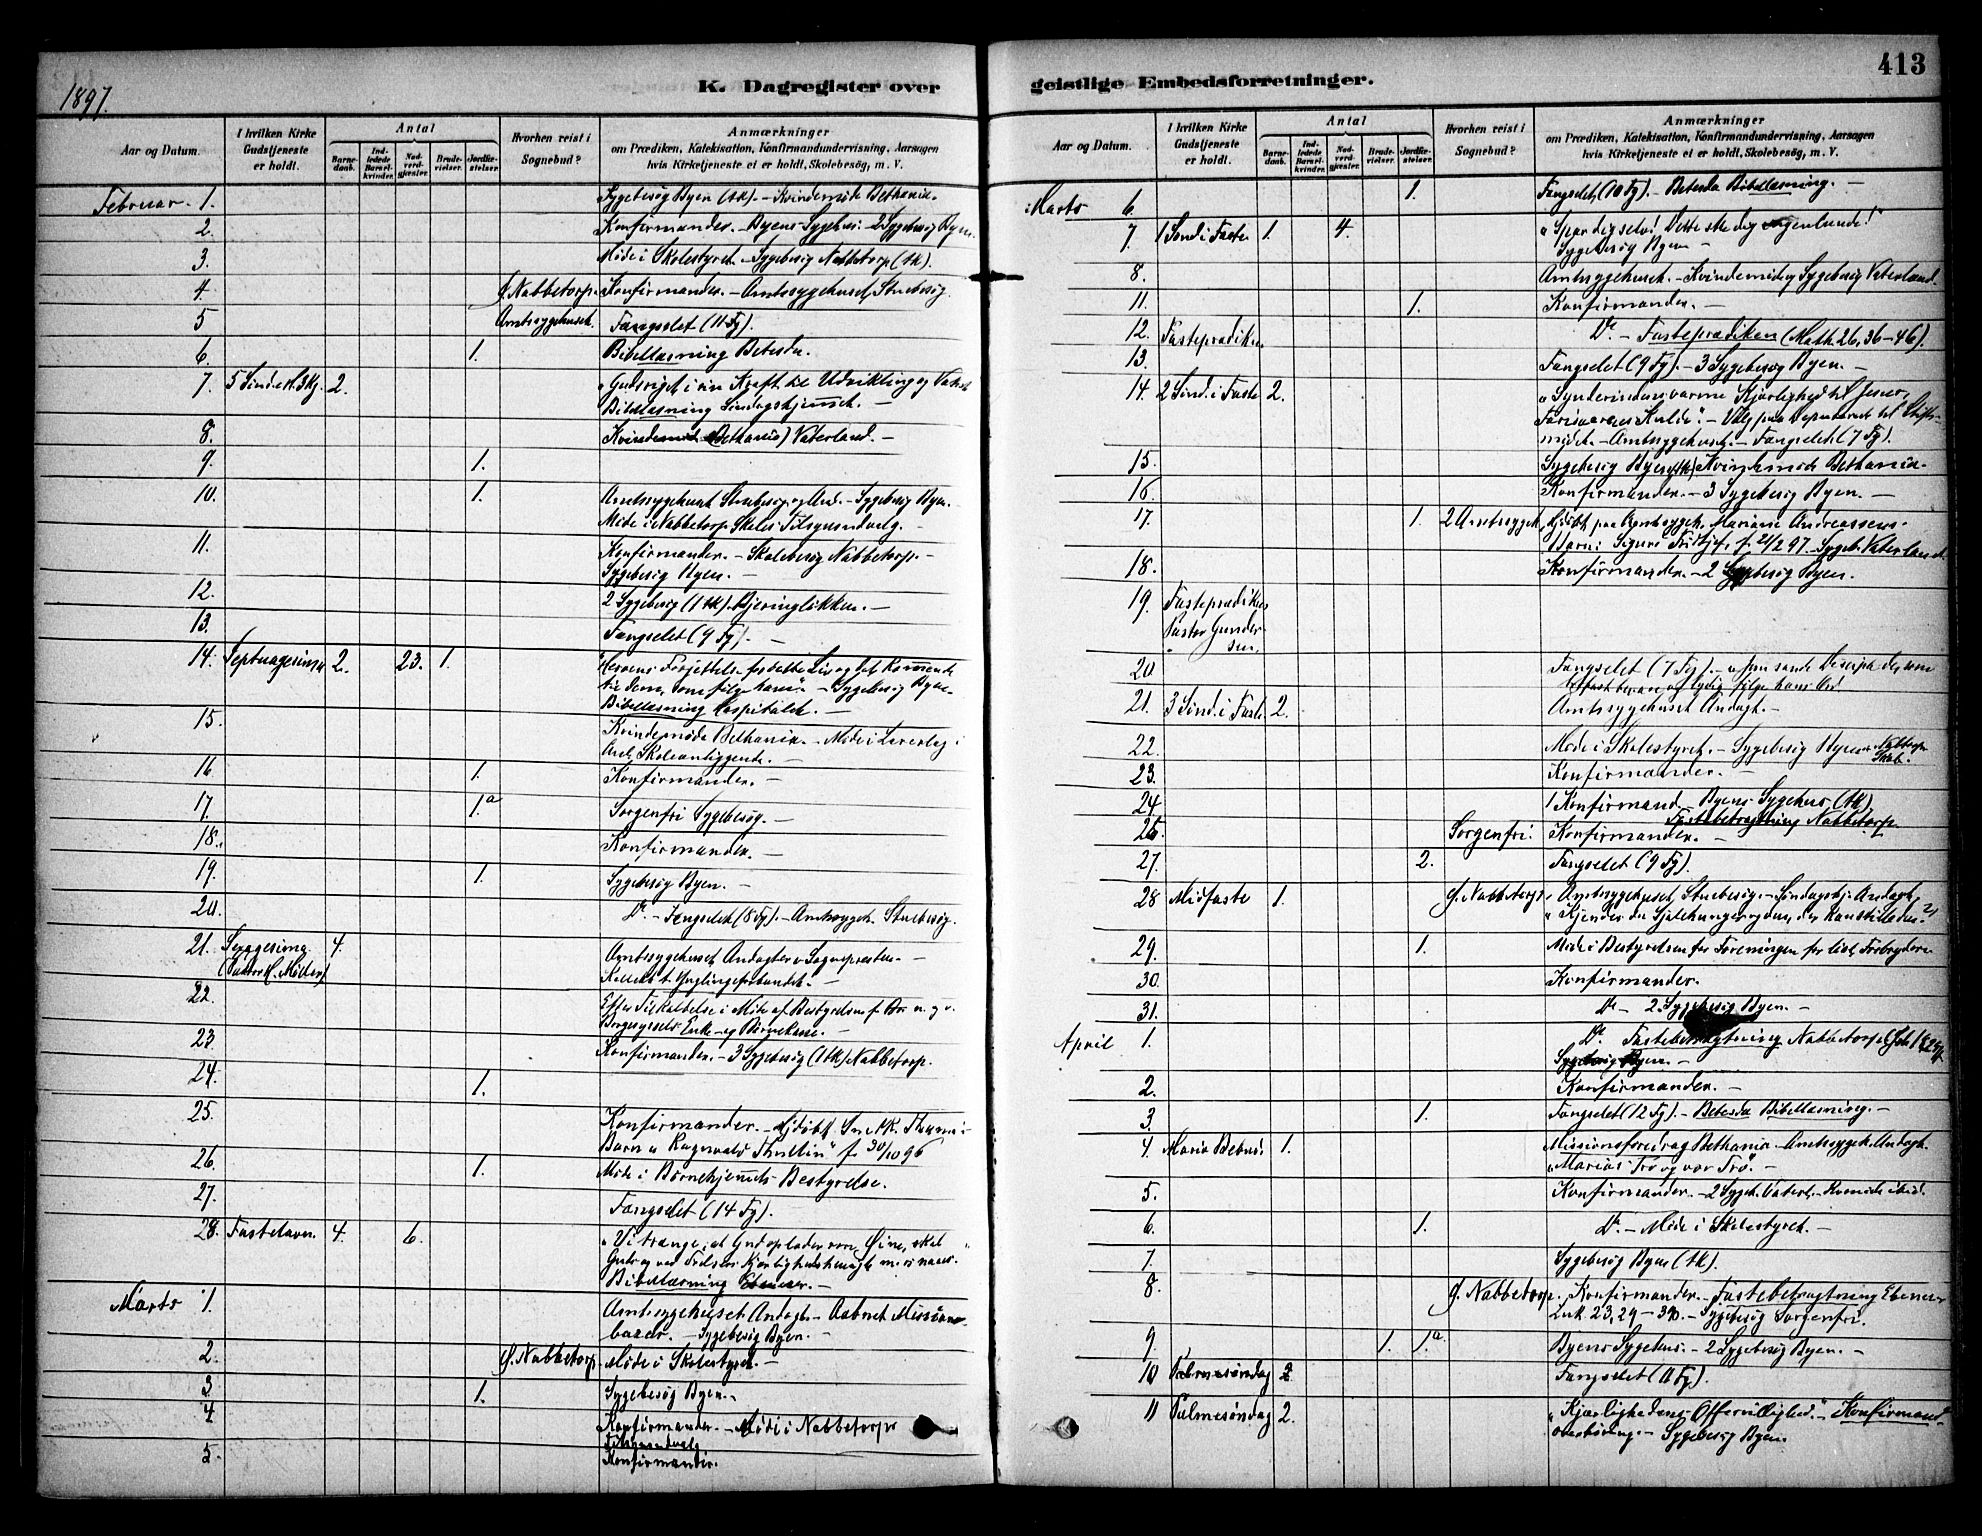 413
1897.
K. Dagregister over
Aar og Datum.
I hvilken Kirke Gudstjeneste er holdt.
Antal
Barnedaab.
Indledede Barselkvinder.
Nadverdgjæster.
Brudevielser.
Jordfæstelser
Hvorhen reist i Sognebud?
Anmærkninger
om Prædiken, Katekisation, Konfirmandundervisning, Aarsagen
hvis Kirketjeneste ei er holdt, Skolebesøg, m. V.
Februar 1. Sygebesøg Byen (1k). – Kvindemøde Bethania.
2. Konfirmander. – Byens Sygehus. – 2 Sygebesøg Byen.
3. Møde i Skolestyret. – Sygebesøg Nabbetorp (1k).
4. G. Nabbetorp. Konfirmander. – Amtssygehuset, Stuebesøg.
5 Amtssygehuset. Fængselet (11 Fg).
6. 1. Bibellæsning Betesda.
7. 2. Gudsriget i sin Kraft til Udvikling og
Bibellæsning Søndagshjemmet. –
8. Kvindemøde (Bethania) Vaterland. –
9. 1.
10. 1. Amtssygehuset Stuebesøg og And. – Sygebesøg Byen.
Møde i Nabbetorp Skoles Tilsynsudvalg. –
11. Konfirmander. – Skolebesøg Nabbetorp. –
Sygebesøg Byen. –
12. 2 Sygebesøg (1 1k) Bjeringløkken. –
13. Fængselet (9 Fg). –
14. Septuagesima 2. 23. 1. Forjættelse for dette Liv og det kommende
til dem, som følge ham" – Sygebesøg Byen.
Bibellæsning Hospitalet. –
15. Kvindemøde Bethania. – Møde i
Skoleanliggende. –
16 1. Konfirmander. –
17. 1.a Sorgenfri Sygebesøg. –
18. Konfirmander. –
19. 1. Sygebesøg Byen. –
20. Do – Fængselet (8 Fg). – Amtssygeh. Stuebesøg.
21. Sexagesima 4.
Amtssygehuset Andagt v. Sognepresten. –
Kollekt t. Ynglingeforbundet. –
22. Efter Tilkaldelse i Møde af Bestyrelsen f.
Borgesyssels Enke- og Børnekasse. –
23. Konfirmander. – 3 Sygebesøg (1 1k) Nabbetorp.
24. 1.
25. Konfirmander. –
Barn 30/10 96
26. 1. Møde i Børnehjemmets Bestyrelse.
27. Fængselet (14 Fg).
28. Fastelavn. 4. 6. Vi trænge, at Gud oplader vore Øine, skal
Bibellæsning –
Marts 1. Amtssygehuset Andagt. – Aabnet Missions-
bazar. – Sygebesøg Byen. –
2. G. Nabbetorp. Møde i Skolestyret. –
3. 1. Sygebesøg Byen. –
4 Konfirmander. – Møde i Nabbetorps
Tilsynsudvalg
5. Konfirmander.
geistlige Embedsforretninger.
Aar og Datum.
I hvilken Kirke Gudstjeneste er holdt.
Antal
Barnedaab.
Indledede Barselkvinder.
Nadverdgjæster.
Brudevielser.
Jordfæstelser
Hvorhen reist i Sognebud?
Anmærkninger
om Prædiken, Katekisation, Konfirmandundervisning, Aarsagen
hvis Kirketjeneste ei er holdt, Skolebesøg, m. V.
Marts 6. 1. Fængselet (10 Fg). – Betesda Bibellæsning. –
7. 1 Sønd i Faste 1. 4. "Spar dig selv! Dette ske dig ingenlunde!"
Sygebesøg Byen –
8. Amtssygehuset. – Kvindemøde, Sygebesøg Vaterland.
11. 1. Konfirmander. –
12. Fasteprædiken Do – Fasteprædiken (Math 26, 36–46).
13. Fængselet (9 Fg). – 3 Sygebesøg Byen. –
14. 2 Sønd. i Faste 2. "Synderindens varme Kjærlighed til Jesus,
Farisæernes Kulde". – Valg paa Deputerede til Stifts-
mødet. – Amtssygehuset. – Fængselet (7 Fg).
15. Sygebesøg Byen (1k) Kvindemøde Bethania.
16. Konfirmander. – 3 Sygebesøg Byen. –
17. 1. 2 Amtssygeh. Hjdøbt paa Amtssygeh. Mariane Andreassens
Barn: Sigurd f. 21/2 97. Sygeb. Vaterland.
18. Konfirmander. – 2 Sygebesøg Byen.
19. Fasteprædiken
Pastor Gunder-
sen.
20 Fængselet (7 Fg). –
21. 3 Sønd. i Faste 2. Amtssygehuset Andagt. –
22. Møde i Skolestyret. – Sygebesøg Byen
23. Konfirmander. –
24. 1 Konfirmand – Byens Sygehus (1k)
Fastebetragtning Nabbetorp.
26. Sorgenfri. Konfirmander. –
27. 2. Fængselet (9 Fg).
28 Midfaste 1. G. Nabbetorp. Amtssygehuset, Stuebesøg. – Søndagshj. Andagt,
"Kjender du Sjælehungeren, og den, der kan stille den?"
29. 1. Møde i Bestyrelsen for Foreningen for
30. Konfirmander.
31. Do – 2 Sygebesøg Byen. –
April 1. Do Fastebetragtning Nabbetorp
Sygebesøg Byen. –
2. Konfirmander. –
3. 1. Fængselet (12 Fg). – Betesda Bibellæsning. –
4. Maria Bebud. 1. Missionsforedrag Bethania – Amtssygeh. Andagt.
"Marias Tro og vor Tro". –
5. Konfirmander. – 2 Sygeb. Vaterl.
6. 1. Do – Møde i Skolestyret. –
7. Sygebesøg Byen (1k).
8. G. Nabbetorp. Konfirmander. – Fastebetragtning Ebenezer
Luk 23, – Sygebesøg Sorgenfri.
9. 1. 1.a Byens Sygehus. – 2 Sygebesøg Byen. –
10 Palmesøndag 2 Fængselet (11 Fg).
11 Palmesøndag 2. "Kjærlighedens Offervillighed." – Konfirmand-
overhøring. – Sygebesøg Byen.